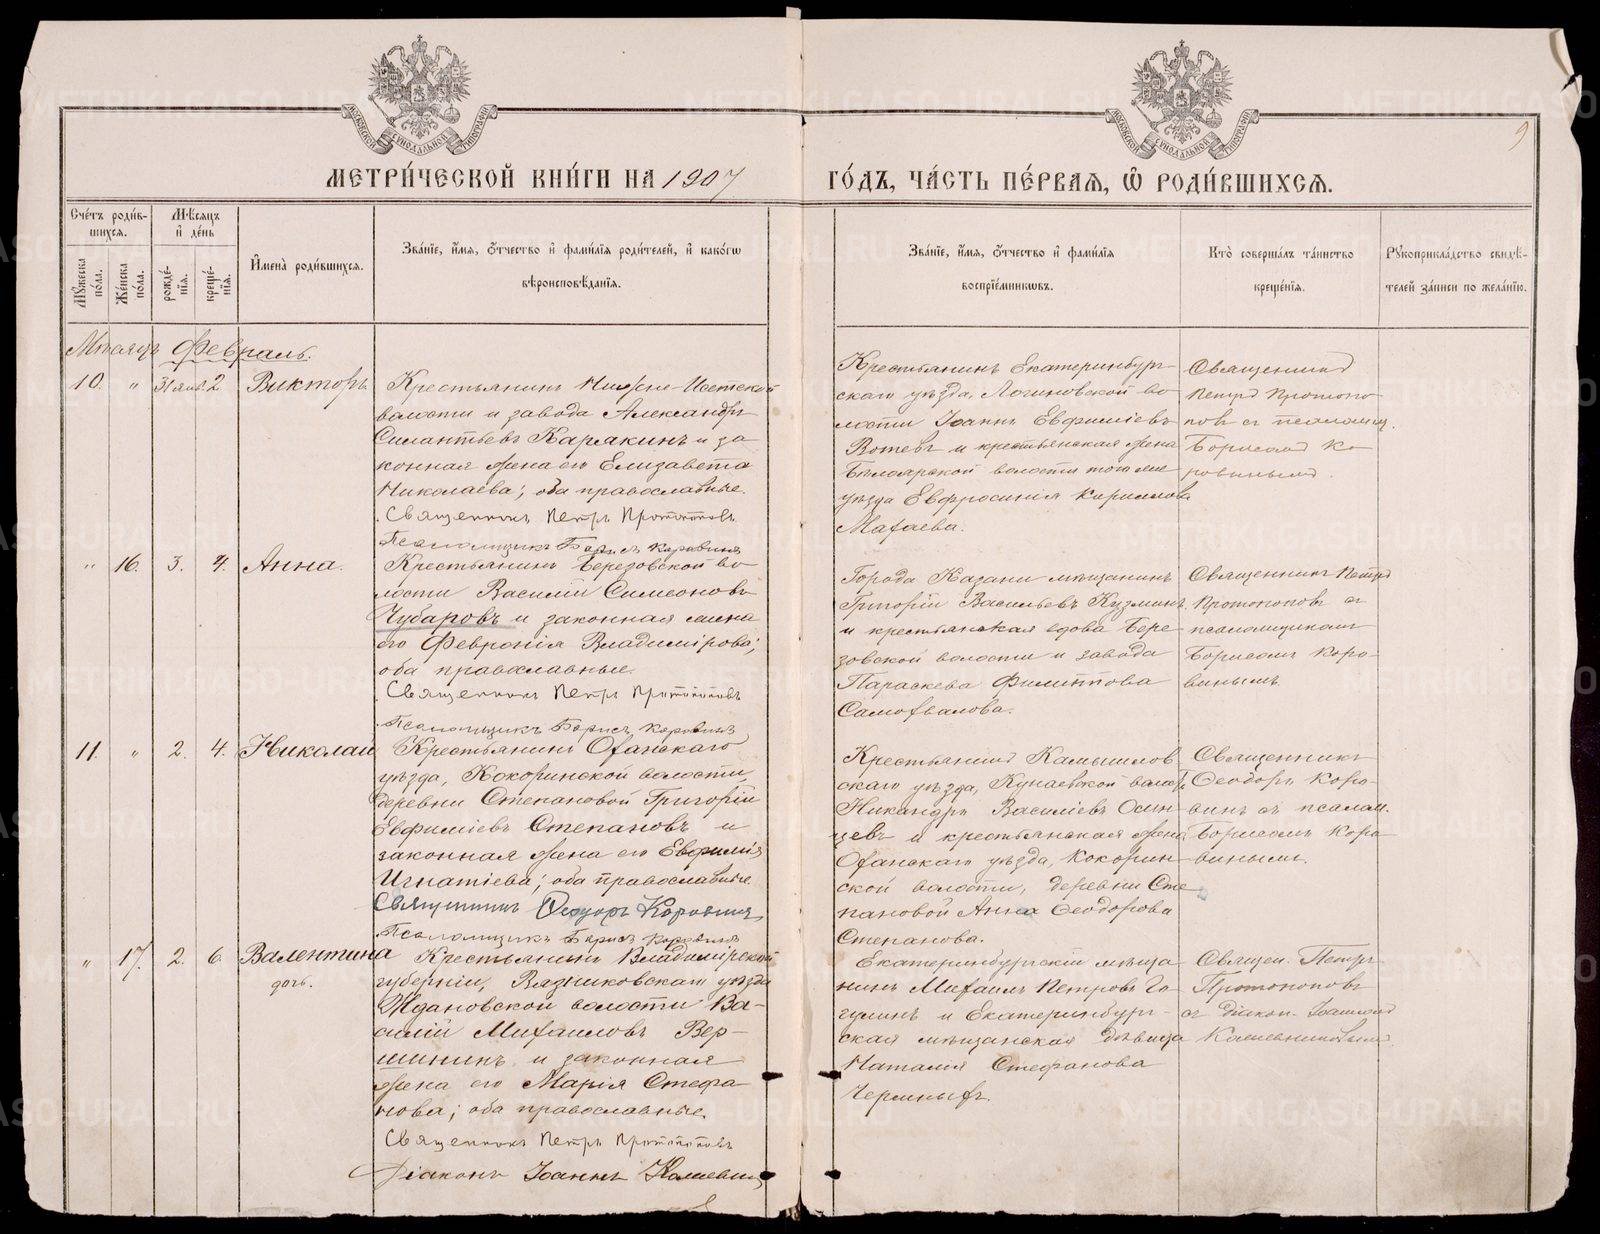 МЕТРИ́ЧЕСКОЙ КНИ́ГИ НА 1907
ГО́ДЪ, ЧА́СТЬ ПЕ́РВАѦ, Ѡ҆ РОДИ́ВШИХСѦ.
9
Сче́тъ роди́в-
шихсѧ.
Мѣ́сѧцъ
и҆ де́нь
И҆мена̀ роди́вшихсѧ.
Зва́нїе, и҆́мѧ, ѻ҆́тчество и҆ фами́лїѧ роди́телей, и҆ како́гѡ
вѣроисповѣ́данїѧ.
Мꙋ́жеска по́ла.
Же́нска по́ла.
рожде́-нїѧ.
креще́-нїѧ.
Зва́нїе, и҆́мѧ, ѻ҆́тчество и҆ фами́лїѧ
воспрїе́мникѡвъ.
Кто̀ соверша́лъ та́инство
креще́нїѧ.
Рꙋкоприкла́дство свидѣ́-
телей за́писи по жела́нїю.
Мѣсяцъ Февраль.
10. " 31 янв. 2 Викторъ
Крестьянинъ Нижне-Исетской
волости и завода Александръ
Силантьевъ Карякинъ и за-
конная жена его Елизавета
Николаева; оба православные.
Священникъ Петръ Протопоповъ
Псаломщикъ Борисъ Коровинъ
Крестьянинъ Екатеринбург-
скаго уѣзда, Логиновской во-
лости Іоаннъ Евфиміевъ
Вотевъ и крестьянская жена
Бѣлоярской волости того же
уѣзда Евфросинія Кириллова
Махаева.
Священникъ
Петръ Протопо-
повъ съ псаломщ.
Борисомъ Ко-
ровинымъ.
" 16. 3. 4. Анна.
Крестьянинъ Березовской во-
лости Василій Симеоновъ
Чубаровъ и законная жена
его Февронія Владимірова;
оба православные.
Священникъ Петръ Протопоповъ
Псаломщикъ Борисъ Коровинъ
Города Казани мѣщанинъ
Григорій Васильевъ Кузминъ
и крестьянская вдова Бере-
зовской волости и завода
Параскева Филиппова
Самохвалова.
Священникъ Петръ
Протопоповъ съ
псаломщикомъ
Борисомъ Коро-
винымъ.
11. " 2. 4. Николай
Крестьянинъ Оханскаго
уѣзда, Кокоринской волости,
деревни Степановой Григорій
Евфиміевъ Степановъ и
законная жена его Евфимія
Игнатіева; оба православные.
Священникъ Ѳеодоръ Коровинъ
Псаломщикъ Борисъ Коровинъ
Крестьянинъ Камышлов-
скаго уѣзда, Куяевской волос.
Никандръ Василіевъ Осин-
цевъ и крестьянская жена
Оханскаго уѣзда, Кокорин-
ской волости, деревни Сте-
пановой Анна Ѳеодорова
Степанова.
Священникъ
Ѳеодоръ Коро-
винъ съ псалом.
Борисомъ Коро-
винымъ.
" 17. 2. 6. Валентина
дочь.
Крестьянинъ Владимірской
губерніи, Вязниковскаго уѣзда
Ждановской волости Ва-
силій Михаиловъ Вер-
шининъ и законная
жена его Марія Стефа-
нова; оба православные.
Священникъ Петръ Протопоповъ
Діаконъ Іоаннъ
Екатеринбургскій мѣща-
нинъ Михаилъ Петровъ Го-
гулинъ и Екатеринбург-
ская мѣщанская дѣвица
Наталія Стефанова
Черныхъ.
Священ. Петръ
Протопоповъ
съ діакон. Іоанномъ